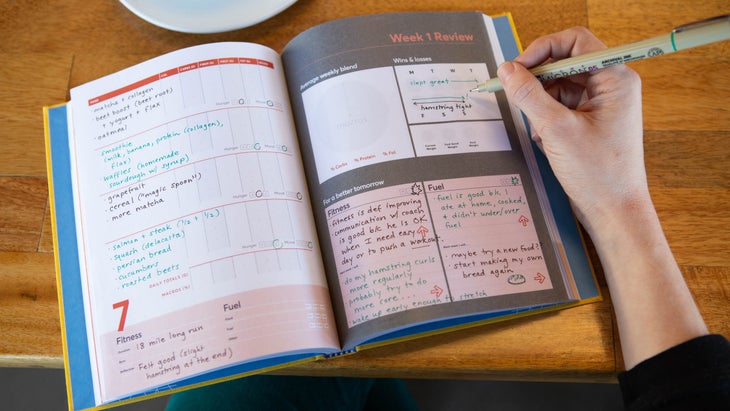 FOOD
matcha + collagen
beet boost (beet root)
+ yogurt + flax
oatmeal
Hunger
Mood
smoothie
(milk, banana, protein (collagen),
flax)
waffles (homemade
sourdough w/ syrup)
Hunger
Mood
grapefruit
cereal ("magic spoon")
more matcha
Hunger
Mood
salmon + steak (1/2 + 1/2)
squash (delacata)
persian bread
cucumbers
roasted beets
Hunger
Mood
DAILY TOTALS (G)
MACROS (%)
7
Fitness
18 mile long run
Felt good (slight
hamstring at the end)
Fuel
Week 1 Review
Average weekly blend
% Carbs % Protein % Fat
Wins & losses
M T W T
slept great
hamstring tight
S S
For a better tomorrow
Fitness
fitness is def improving
communication w/ coach
is good b/c he is OK
when I need easy
day or to push a workout
do my hamstring curls
more regularly
probably try to do
more core...
wake up early enough to stretch
Fuel
fuel is good b/c I
ate at home, cooked,
+ didn't under/over
fuel
maybe try a new food?
start making my own
bread again